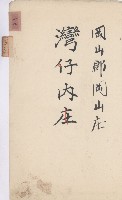 岡山郡岡山庄
灣仔內庄